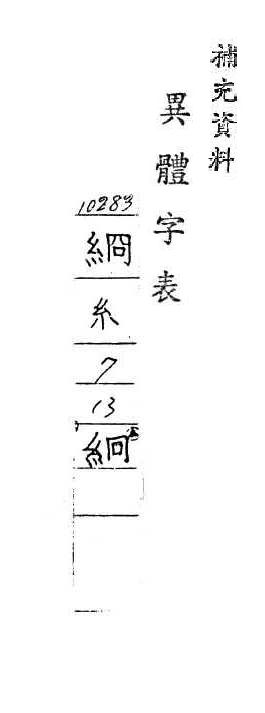 補充資料
異體字表
10283
綗
糸
7
13
絅